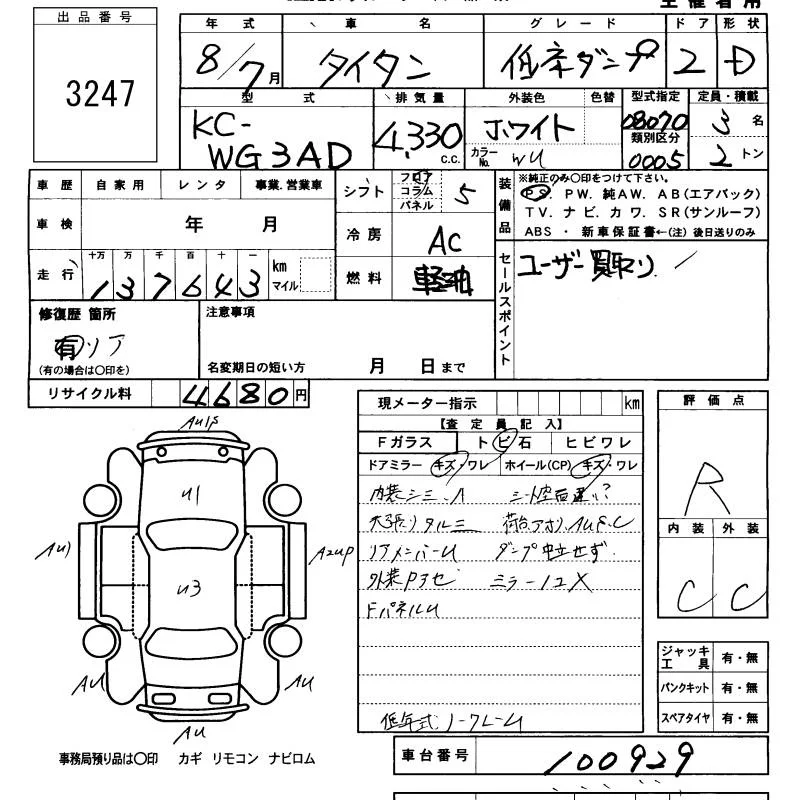 出品番号
3247
年式 車名 グレード ドア 形状
8/7月 タイタン 低床ダンプ 2 D
型式 排気量 外装色 色替 型式指定 定員・積載
KC-WG3AD 4,330 C.C. ホワイト 08070 3名
カラーNo. WU 類別区分 0005 2トン
車歴 自家用 レンタ 事業.営業車
シフト フロア コラム パネル 5
装備品
※純正のみ〇印をつけて下さい。
PS. PW. 純AW. AB(エアバック)
TV. ナビ. カワ. SR(サンルーフ)
ABS ・ 新車保証書←(注) 後日送りのみ
車検 年 月
冷房 AC
走行 十万 万 千 百 十 一
137643 km マイル
燃料 軽油
セールスポイント
ユーザー買取り
修復歴 箇所
有 リア
(有の場合は〇印を)
注意事項
名変期日の短い方 月 日まで
リサイクル料 4680円
現メーター指示 km
【査定員記入】
Fガラス トビ石 ヒビワレ
ドアミラー キズ・ワレ ホイール(CP) キズ・ワレ
内装シミ、
リアメンバーU ダンプ中立せず.
FパネルU
評価点
R
内装 外装
C C
U1
U3
A2UP
AU
AU
AU
ジャッキ工具 有・無
パンクキット 有・無
スペアタイヤ 有・無
事務局預り品は〇印 カギ リモコン ナビロム
車台番号 100929